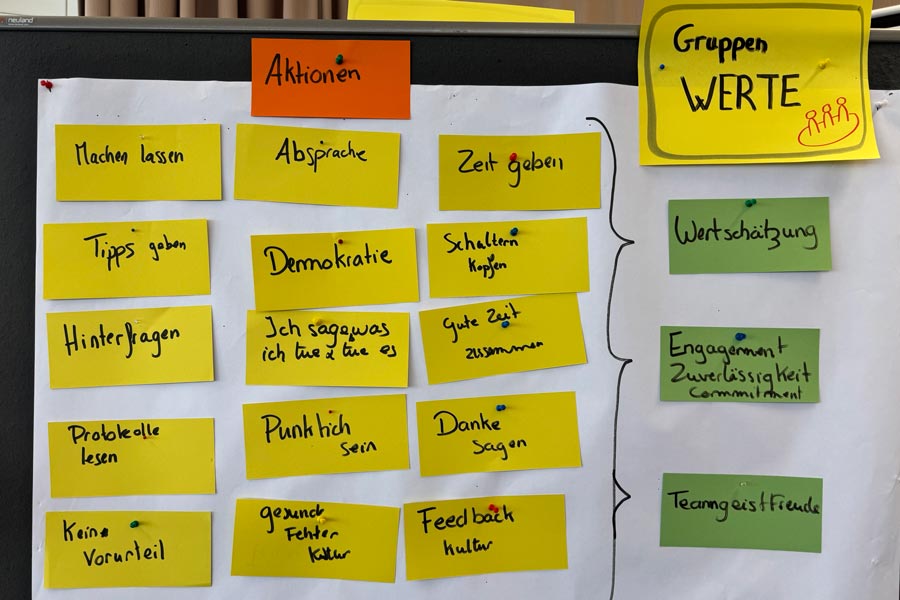 neuland
Aktionen
Gruppen
WERTE
Machen lassen
Absprache
Zeit geben
Tipps geben
Demokratie
Schultern
klopfen
Hinterfragen
Ich sage was
ich tue & tue es
Gute Zeit
zusammen
Protokolle
lesen
Pünktlich
sein
Danke
sagen
Keine
Vorurteil
gesunde
Fehler
Kultur
Feedback
Kultur
Wertschätzung
Engagement
Zuverlässigkeit
Commitment
Teamgeist Freude